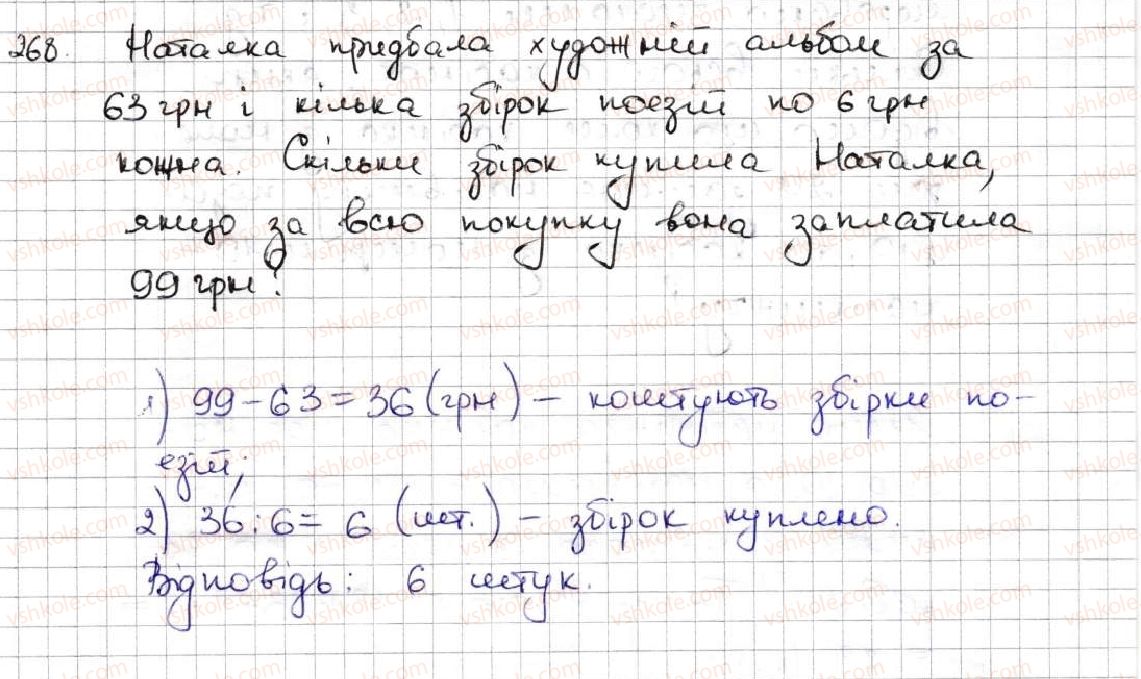 268. Наталка придбала художній альбом за
63 грн і кілька збірок поезій по 6 грн
кожна. Скільки збірок купила Наталка,
якщо за всю покупку вона заплатила
99 грн?
1) 99 - 63 = 36 (грн) - коштують збірки по-
езій;
2) 36 : 6 = 6 (шт.) - збірок куплено.
Відповідь: 6 штук.